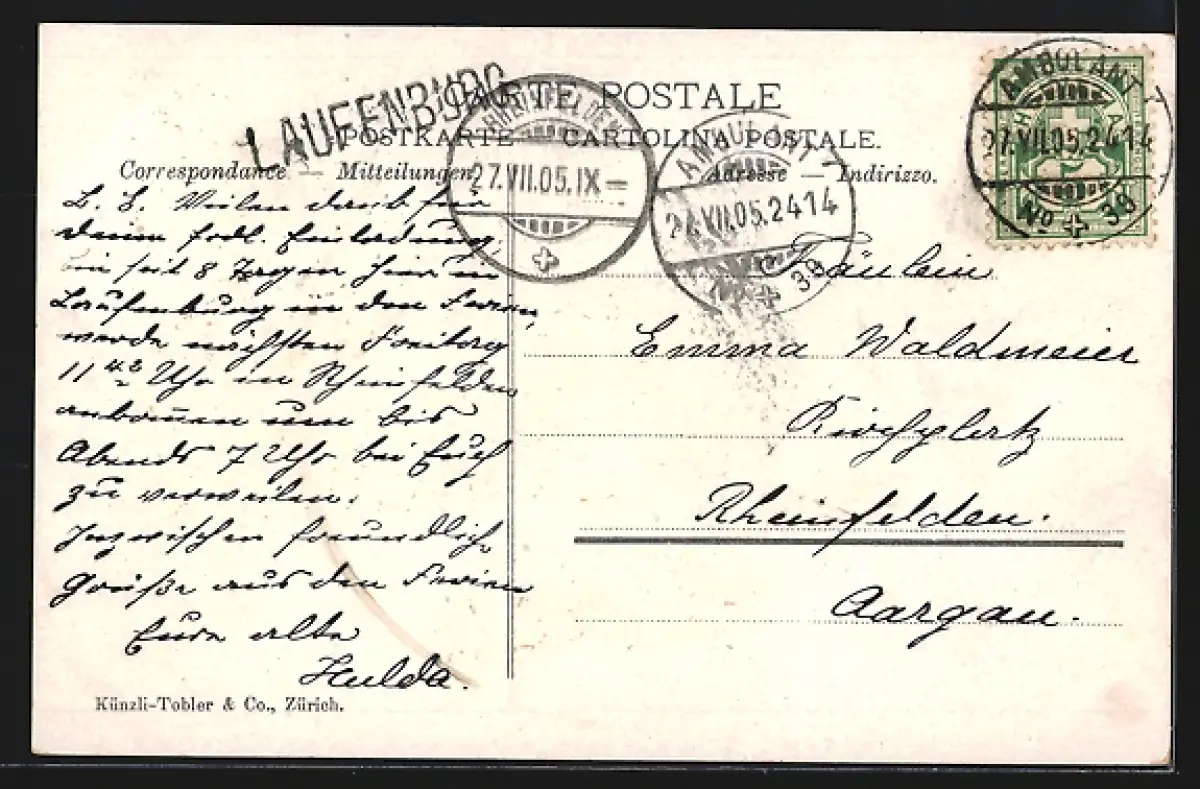 CARTE POSTALE
POSTKARTE — CARTOLINA POSTALE.
Correspondance — Mitteilungen
Adresse — Indirizzo.
LAUFENBURG
RHEINFELDEN
27.VII.05.IX—
AMBULANT
27.VII.05.2414
No 38
AMBULANT
27.VII.05.2414
No 38
5
L. L. Vielen Dank für
deine frdl. Einladung,
bin seit 8 Tagen hier in
Laufenburg in den Ferien,
werde nächsten Freitag
11 42 Uhr in Rheinfelden
ankommen um bis
Abends 7 Uhr bei Euch
zu verweilen.
Inzwischen freundliche
Grüße aus den Ferien
Eure alte
Hulda.
Fräulein
Emma Waldmeier
Kirchplatz
Rheinfelden.
Aargau.
Künzli-Tobler & Co., Zürich.